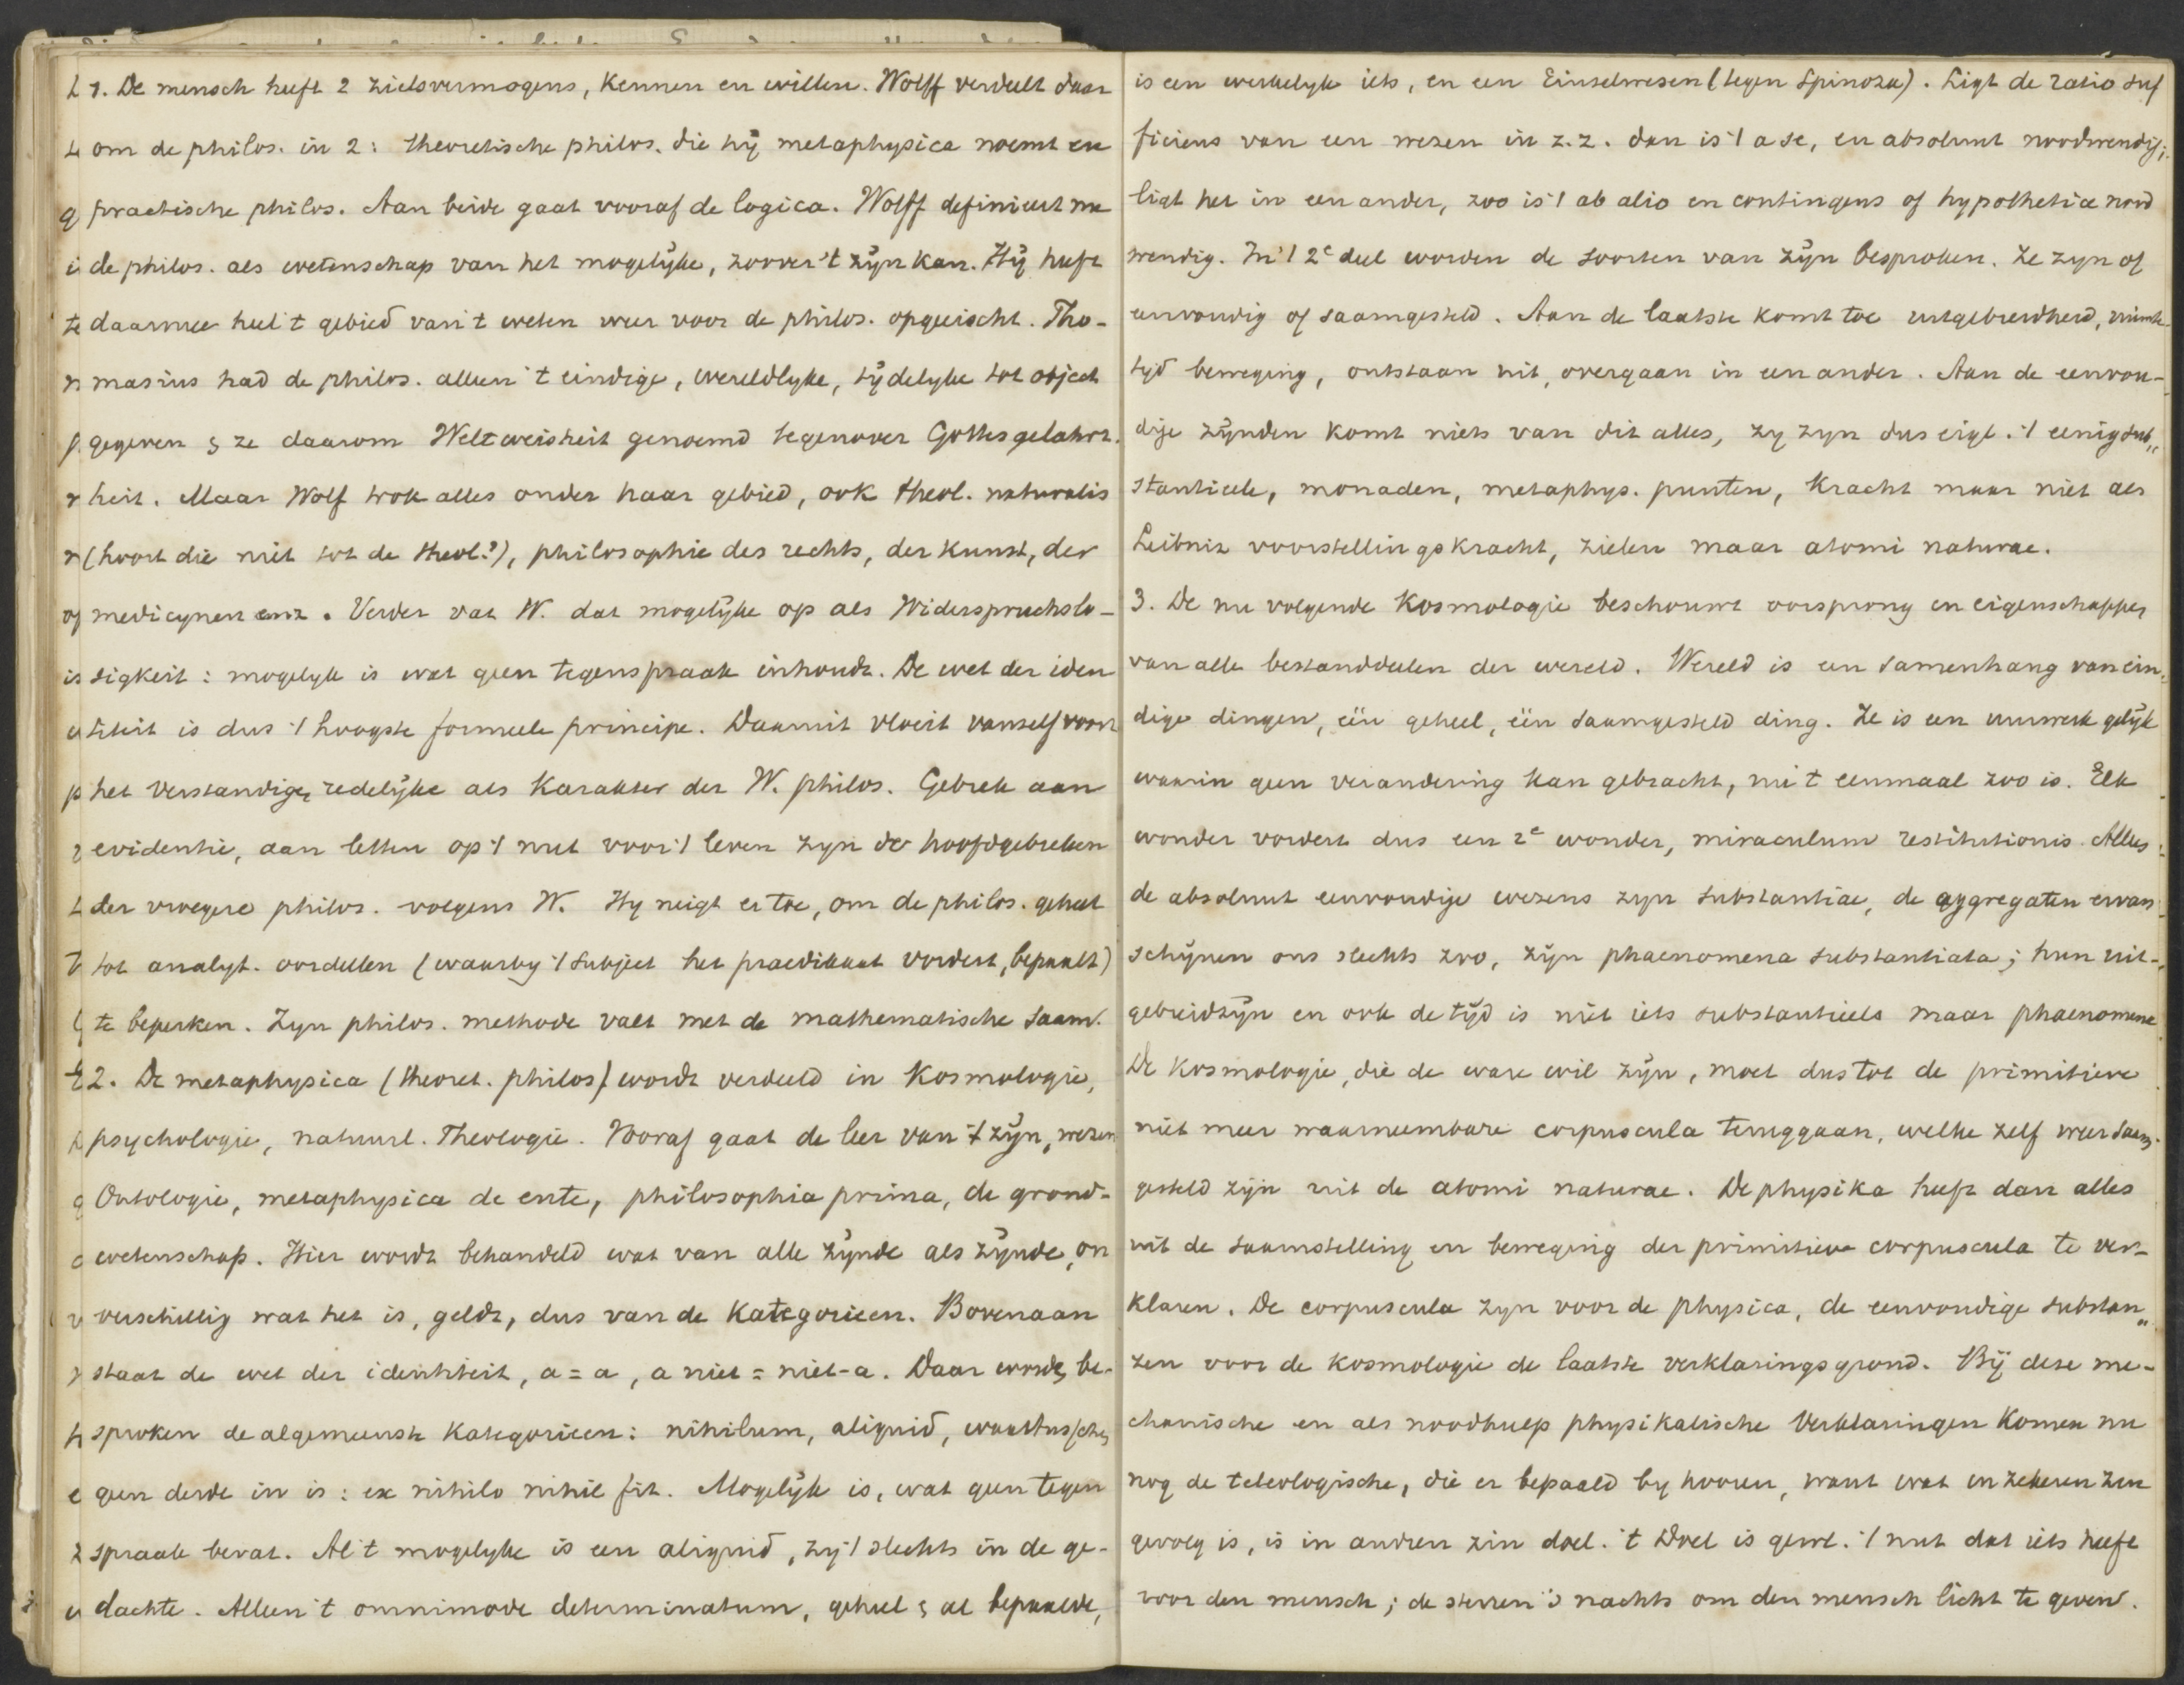 1. De mensch heeft 2 zielsvermogens, kennen en willen. Wolff verdeelt daar
om de philos. in 2: theoretische philos. die hÿ metaphysica noemt en
practische philos. Aan beide gaat vooraf de logica. Wolff definieert nu
de philos. als wetenschap van het mogelÿke, zoover 't zÿn kan. Hÿ heeft
daarmee heel 't gebied van 't weten weer voor de philos. opgeëischt. Tho-
masius had de philos. alleen 't eindige, wereldlyke, tÿdelyke tot object
gegeven & ze daarom Weltweisheit genoemd tegenover Gottesgelahrt-
heit. Maar Wolf trok alles onder haar gebied, ook theol. naturalis
(hoort die niet tot de theol.?), philosophie des rechts, der kunst, der
medicynen enz. Verder vat W. dat mogelÿke op als Widerspruchslo-
sigkeit: mogelyk is wat geen tegenspraak inhoudt. De wet der iden
titeit is dus 't hoogste formeele principe. Daaruit vloeit vanself voort
het verstandige, redelÿke als karakter der W. philos. Gebrek aan
evidentie, aan letten op 't nut voor 't leven zyn de hoofdgebreken
der vroegere philos. volgens W. Hy neigt er toe, om de philos. geheel
tot analyt. oordeelen (waarby 't subject het praedikaat vordert, bepaalt)
te beperken. Zyn philos. methode valt met de mathematische saam.
2. De metaphysica (theoret. philos) wordt verdeeld in Kosmologie,
psychologie, natuurl. Theologie. Vooraf gaat de leer van 't zÿn, wezen
Ontologie, metaphysica de ente, philosophia prima, de grond-
wetenschap. Hier wordt behandeld wat van alle zÿnde als zÿnde, on
verschillig wat het is, geldt, dus van de Kategorieen. Bovenaan
staat de wet der identiteit, a = a, a niet = niet-a. Daar worden be-
sproken de algemeenste kategorieen: nihilum, aliquid, waartusschen
geen derde in is: ex nihilo nihil fit. Mogelÿk is, wat geen tegen
spraak bevat. Al 't mogelyke is een aliquid, zy 't slechts in de ge-
dachte. Alleen 't omnimode determinatum, geheel & al bepaalde,
is een werkelyk iets, en een Einselwesen (tegen Spinoza). Ligt de ratio suf
ficiens van een wezen in z.z. dan is 't a se, en absoluut noodwendig;
ligt het in een ander, zoo is 't ab alio en contingens of hypothetice nood
wendig. In 't 2e deel worden de soorten van zÿn besproken. Ze zyn of
eenvoudig of saamgesteld. Aan de laatste komt toe uitgebreidheid, ruimte
tyd beweging, ontstaan uit, overgaan in een ander. Aan de eenvou-
dige zÿnden komt niets van dit alles, zy zyn dus eigl. 't eenig sub„
stantieele, monaden, metaphys. punten, kracht maar niet als
Leibniz voorstellingskracht, zielen maar atomi naturae.
3. De nu volgende Kosmologie beschouwt oorsprong en eigenschappen
van alle bestanddeelen der wereld. Wereld is een samenhang van ein-
dige dingen, één geheel, één saamgesteld ding. Ze is een uurwerk gelÿk
waarin geen verandering kan gebracht, nu 't eenmaal zoo is. Elk
wonder vordert dus een 2e wonder, miraculum restitutionis. Alleen
de absoluut eenvoudige wezens zyn substantiae, de aggregaten ervan
schÿnen ons slechts zoo, zÿn phaenomena substantiata; hun uit-
gebreidzÿn en ook de tÿd is niet iets substantieels maar phaenomene
De kosmologie, die de ware wil zÿn, moet dus tot de primitieve
niet meer waarneembare corpuscula teruggaan, welke zelf weer saam-
gesteld zÿn uit de atomi naturae. De physika heeft dan alles
uit de saamstelling en beweging der primitieve corpuscula te ver-
klaren. De corpuscula zyn voor de physica, de eenvoudige substan„
zen voor de kosmologie de laatste verklaringsgrond. Bÿ deze me-
chanische en als noodhulp physikalische verklaringen komen nu
nog de teleologische, die er bepaald by hooren, want wat in zekeren zin
gevolg is, is in andren zin doel. 't Doel is gewl. 't nut dat iets heeft
voor den mensch; de sterren 's nachts om den mensch licht te geven.